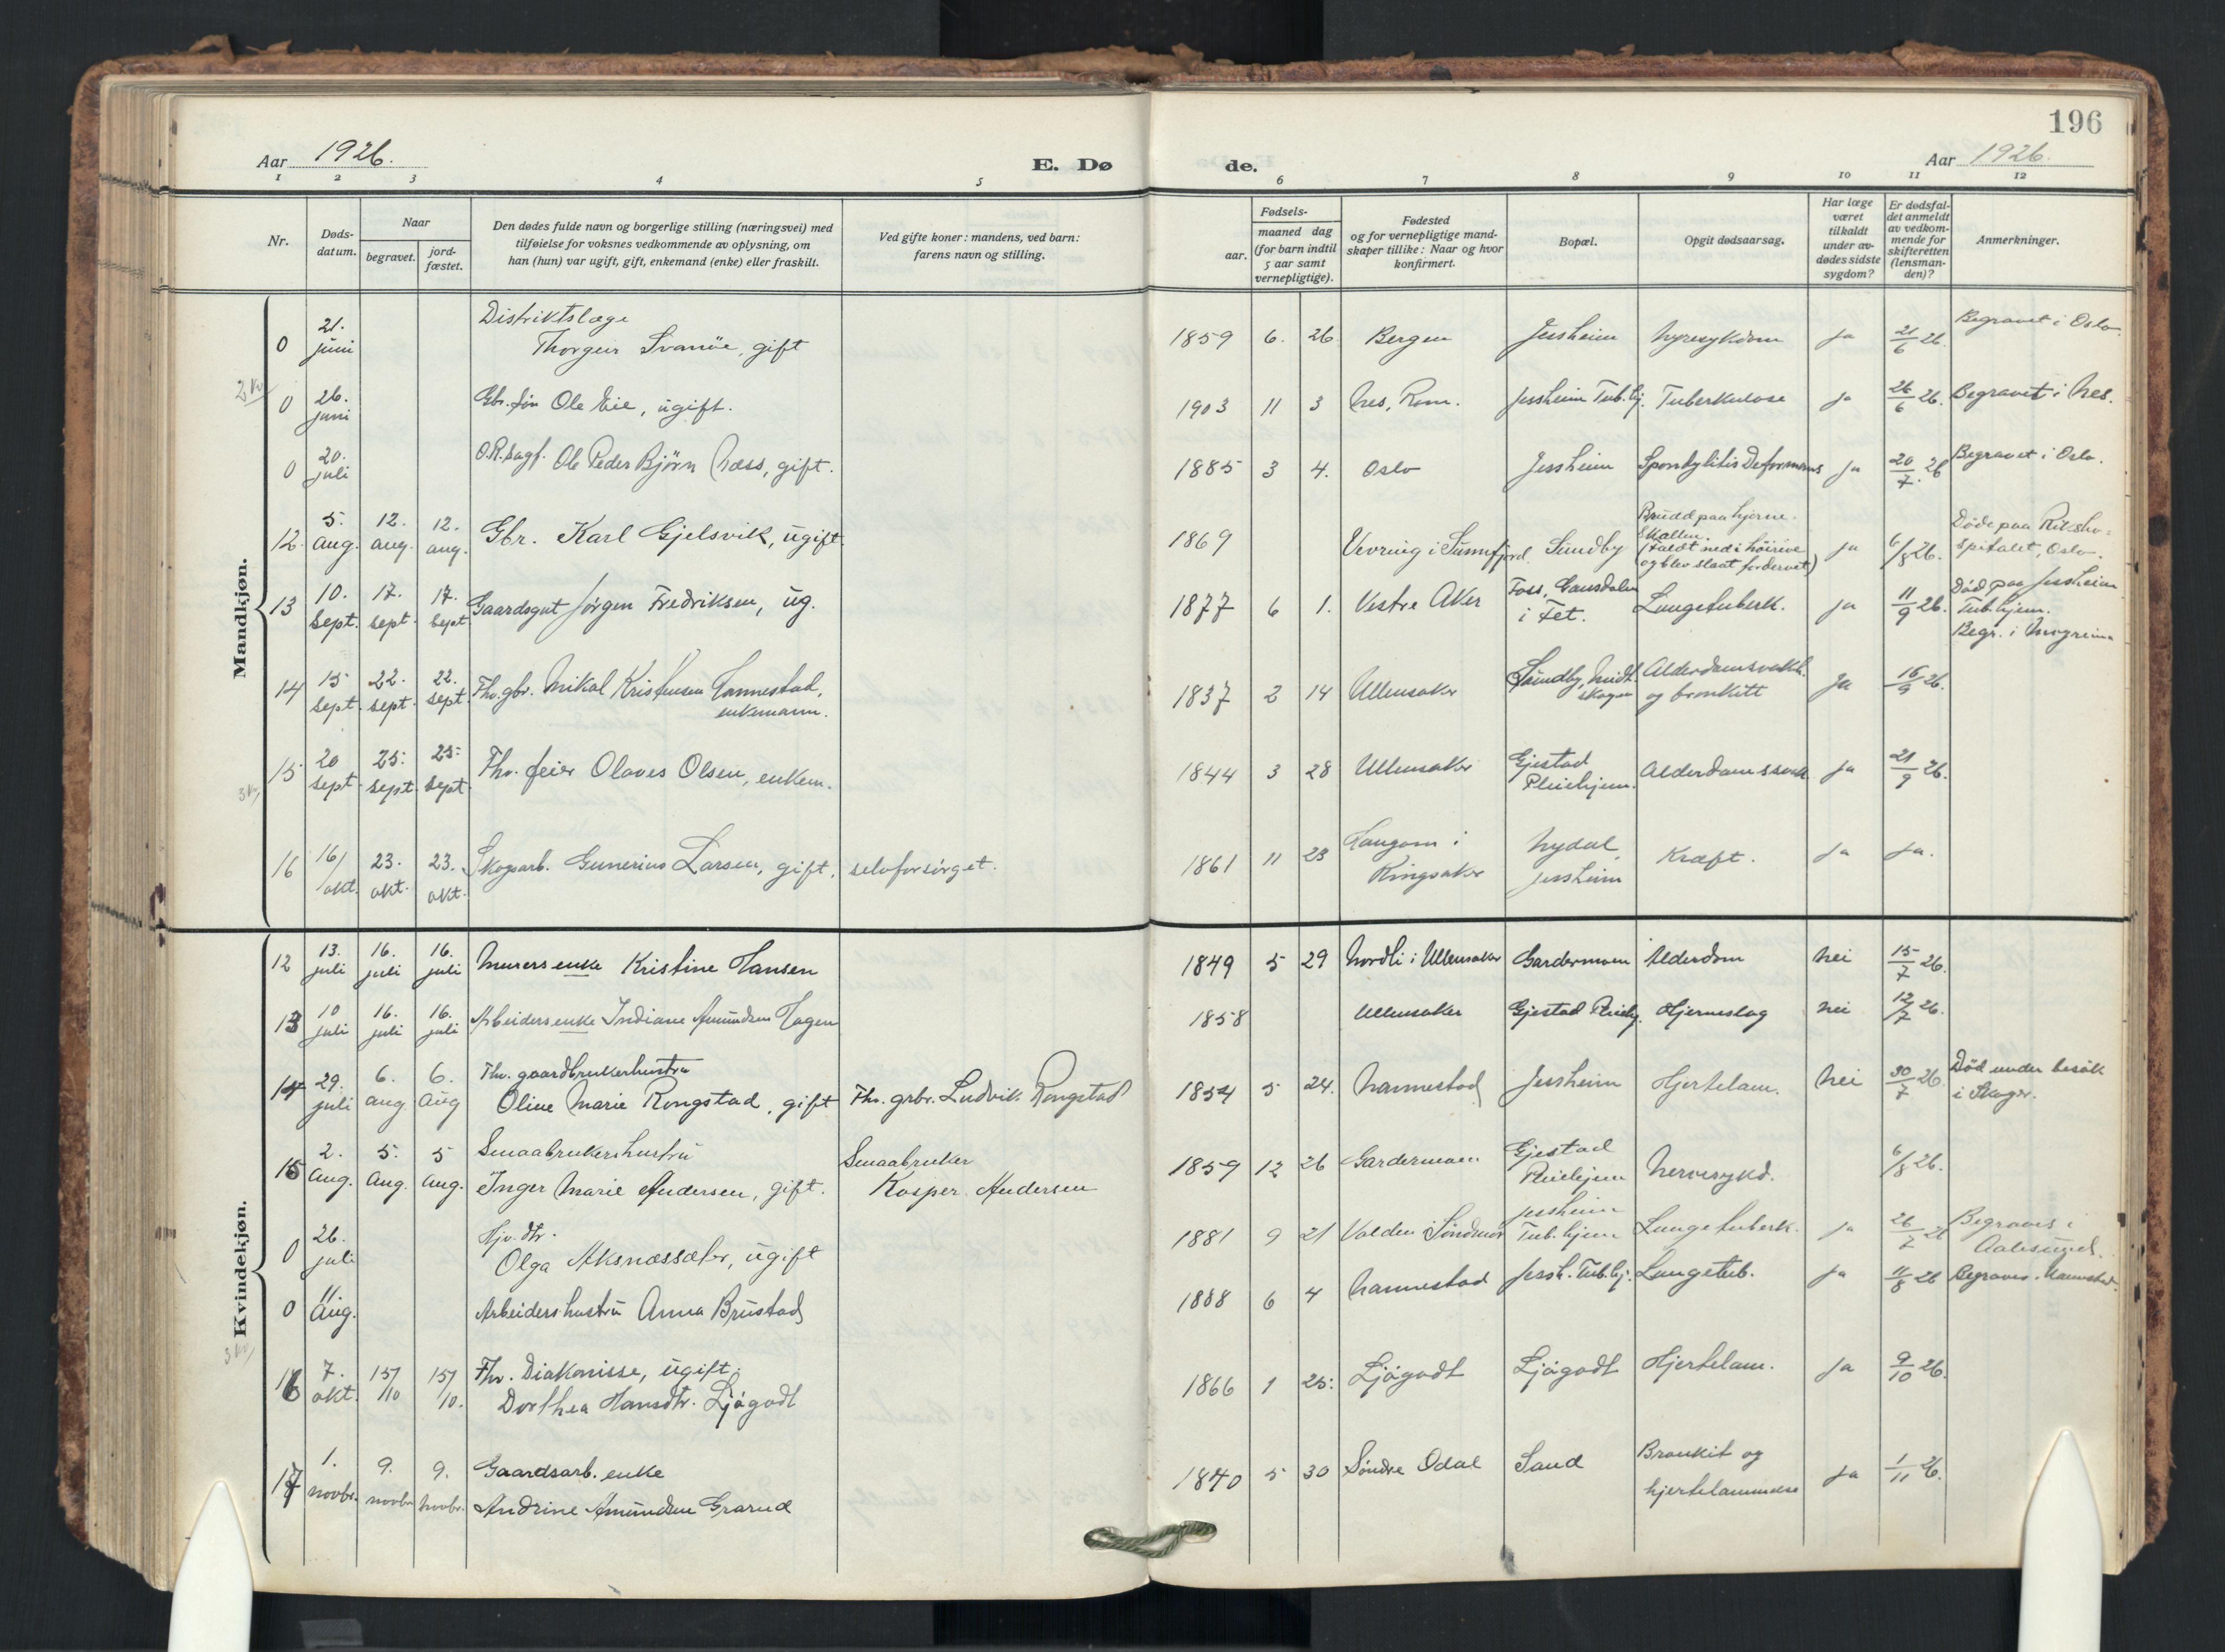 196
Aar 1926.
E. Dø
de.
Aar 1926.
1 2 3 4 5 6 7 8 9 10 11 12
Nr.
Døds-
datum.
Naar
begravet.
jord-
fæstet.
Den dødes fulde navn og borgerlige stilling (næringsvei) med
tilføielse for voksnes vedkommende av oplysning, om
han (hun) var ugift, gift, enkemand (enke) eller fraskilt.
Ved gifte koner: mandens, ved barn:
farens navn og stilling.
Fødsels-
aar.
maaned dag
(for barn indtil
5 aar samt
vernepligtige).
Fødested
og for vernepligtige mand-
skaper tillike: Naar og hvor
konfirmert.
Bopæl.
Opgit dødsaarsag.
Har læge
været
tilkaldt
under av-
dødes sidste
sygdom?
Er dødsfal-
det anmeldt
av vedkom-
mende for
skifteretten
(lensman-
den)?
Anmerkninger.
Mandkjøn.
0 21. juni
Distriktslæge
Thorgeir Svanöe, gift
1859 6. 26 Bergen Jessheim Nyresykdom ja 21/6 26. Begravet i Oslo.
0 26. juni
Gbr. sön Ole Eie, ugift.
1903 11 3 Nes, Rom. Jessheim Tub.hj. Tuberkulose ja 26/6 26. Begravet i Nes.
0 20. juli
O.R.sagf. Ole Peder Björn Næss, gift.
1885 3 4. Oslo Jessheim Spondylitis Deformans ja 20/7 26 Begravet i Oslo.
12. 5. aug. 12. aug. 12. aug.
Gbr. Karl Gjelsvik, ugift.
1869 Vevring i Sunnfjord. Sundby
Brudd paa hjerne-
skallen.
(Faldt ned i höirive
og blev slaat fordervet)
ja 6/8 26.
Döde paa Riksho-
spitalet, Oslo.
13 10. sept. 17. sept. 17. sept.
Gaardsgut Jörgen Fredriksen, ug.
1877 6 1. Vestre Aker
Foss, Gansdalen
i Fet.
Lungetuberk. ja 11/9 26.
Död paa Jessheim
Tub.hjem.
Begr. i
14 15 sept. 22. sept. 22. sept.
Fhv. gbr. Mikal Kristensen Hannestad,
enkemann.
1837 2 14 Ullensaker
Sundby, Nridt.
skogen
Alderdomssvakh.
og bronkitt
ja 16/9 26.
15 20 sept. 25. sept. 25. sept.
Fhv. feier Olaves Olsen, enkem.
1844 3 28 Ullensaker
Gjestad
Pleiehjem.
Alderdomssvak. ja 21/9 26.
16 16/okt. 23. okt. 23. okt.
Skogsarb. Gunerius Larsen, gift, selvforsörget.
1861 11 23
i
Ringsaker
Nydal,
Jessheim
Kræft. ja ja.
Kvindekjøn.
12 13. juli 16. juli 16. juli
Murers enke Kristine Hansen
1849 5 29 Nordli i Ullensaker Gardermoen Alderdom nei 15/7 26.
13 10 juli 16. juli 16. juli
Arbeiders enke Indiane Amundsen Hagen
1858 Ullensaker Gjestad Pleiehj. Hjerneslag nei 12/7 26.
14 29. juli 6. aug 6. Aug
Fhv. gaardbrukerhustru
Oline Marie Rongstad, gift
Fhv. grbr. Ludvik Rongstad
1854 5 24. Hannestad Jessheim Hjertelam. nei 30/7 26.
Död under besök
i Skogr.
15 2. Aug. 5. Aug. 5 Aug.
Smaabrukershustru
Inger Marie Andersen, gift.
Smaabruker
Kasper Andersen
1859 12 26 Gardermoen
Gjestad
Pleiehjem
Nervesykd. 6/8 26.
0 26. juli
Hjv. dtr.
Olga Aksnæssæter, ugift
1881 9 21 Volden i Söndmör
Jessheim
Tub.hjem
Lungetuberk. ja 26/7 26
Begraves i
Aalesund.
0 11 Aug.
Arbeidershustru Anna Brustad
1888 6 4 Hannestad Jessh. Tub.hj. Lungetub. ja 11/8 26 Begraves Hannestad.
16 7. okt. 15/10 15/10.
Fhv. Diakonisse, ugift.
Dorthea Hansdtr. Ljögodt
1866 1 25. Ljögodt Ljögodt Hjertelam. ja 9/10 26.
17 1. novbr. 9. novbr 9. novbr.
Gaardsarb. enke
Andrine Amundsen Grarud
1840 5 30 Söndre Odal Sand
Bronkit og
hjertelammelse
ja 1/11 26.